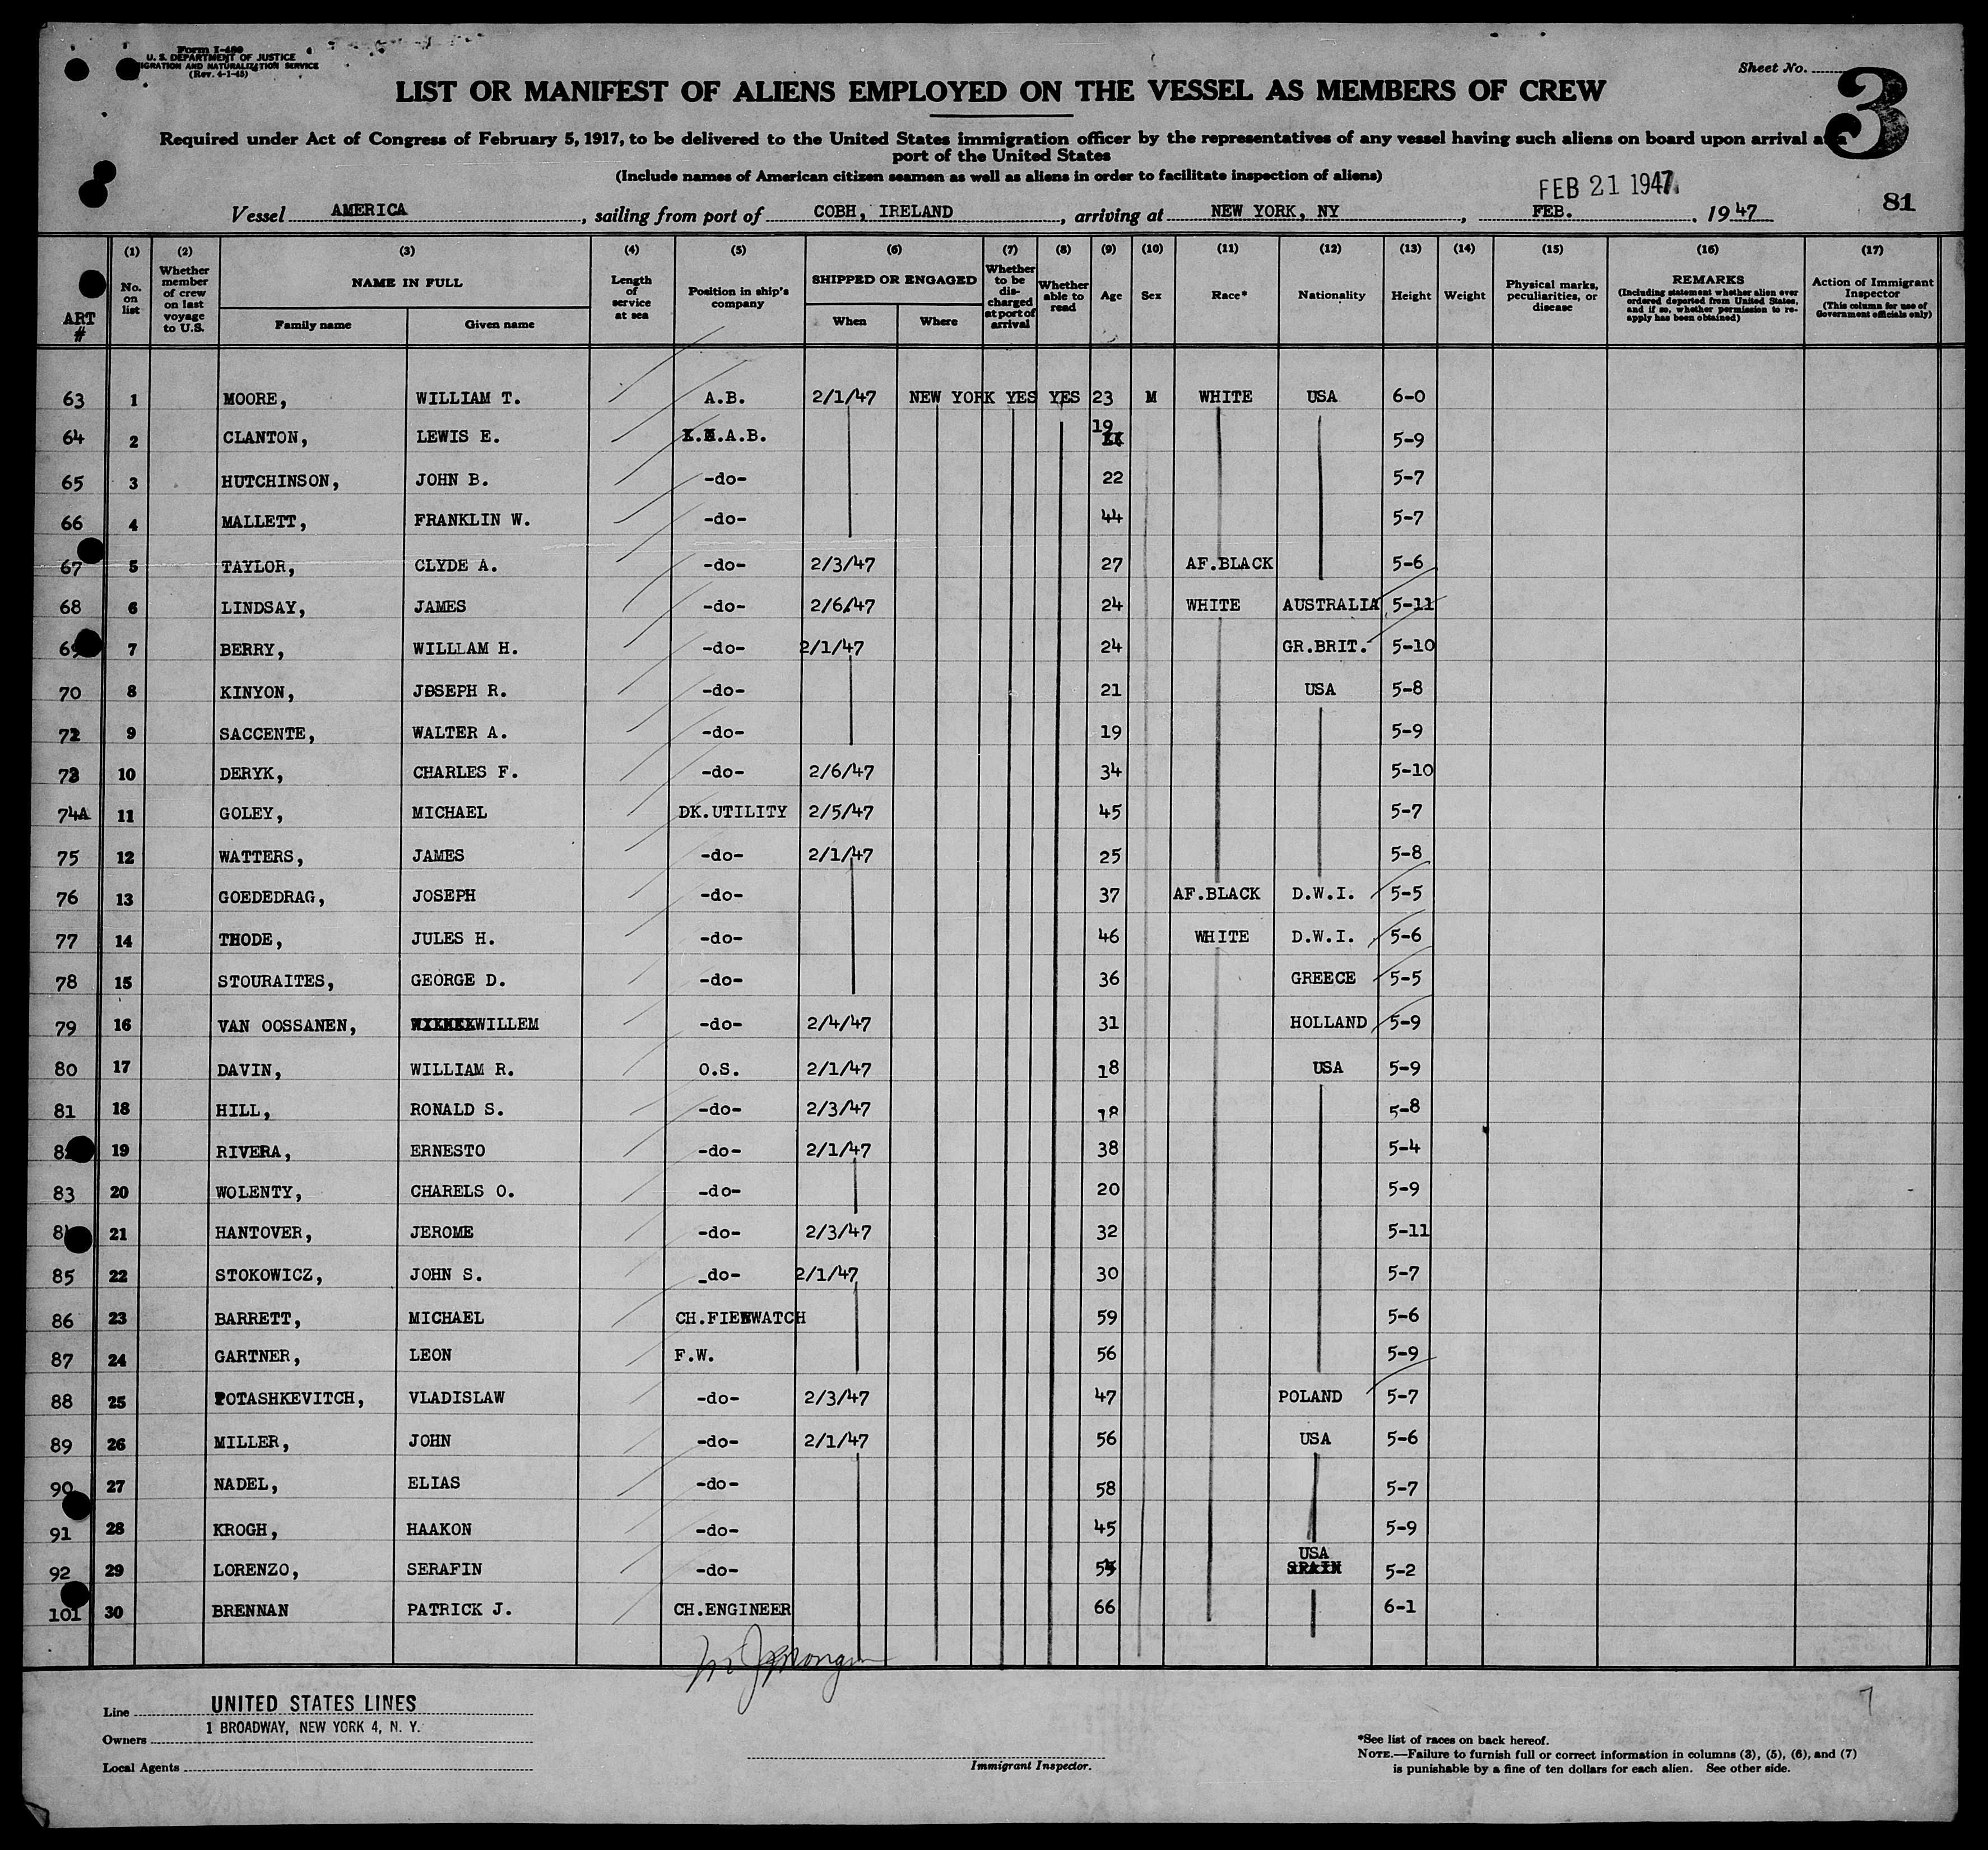 Form I-480
U. S. DEPARTMENT OF JUSTICE
IGRATION AND NATURALIZATION SERVICE
(Rev. 4-1-45)
Sheet No. 3
LIST OR MANIFEST OF ALIENS EMPLOYED ON THE VESSEL AS MEMBERS OF CREW
Required under Act of Congress of February 5, 1917, to be delivered to the United States immigration officer by the representatives of any vessel having such aliens on board upon arrival at a
port of the United States
(Include names of American citizen seamen as well as aliens in order to facilitate inspection of aliens)
FEB 21 1947
81
Vessel AMERICA, sailing from port of COBH, IRELAND, arriving at NEW YORK, NY, FEB., 19 47
(1) (2) (3) (4) (5) (6) (7) (8) (9) (10) (11) (12) (13) (14) (15) (16) (17)
ART # No. on list Whether member of crew on last voyage to U.S. NAME IN FULL Family name Given name Length of service at sea Position in ship's company SHIPPED OR ENGAGED When Where Whether to be discharged at port of arrival Whether able to read Age Sex Race* Nationality Height Weight Physical marks, peculiarities, or disease REMARKS (Including statement whether alien ever ordered deported from United States, and if so, whether permission to re-apply has been obtained) Action of Immigrant Inspector (This column for use of Government officials only)
63 1 MOORE, WILLIAM T. A.B. 2/1/47 NEW YORK YES YES 23 M WHITE USA 6-0
64 2 CLANTON, LEWIS E. A.B. 19 5-9
65 3 HUTCHINSON, JOHN B. -do- 22 5-7
66 4 MALLETT, FRANKLIN W. -do- 44 5-7
67 5 TAYLOR, CLYDE A. -do- 2/3/47 27 AF.BLACK 5-6
68 6 LINDSAY, JAMES -do- 2/6/47 24 WHITE AUSTRALIA 5-11
69 7 BERRY, WILLIAM H. -do- 2/1/47 24 GR.BRIT. 5-10
70 8 KINYON, JOSEPH R. -do- 21 USA 5-8
72 9 SACCENTE, WALTER A. -do- 19 5-9
73 10 DERYK, CHARLES F. -do- 2/6/47 34 5-10
74A 11 GOLEY, MICHAEL DK.UTILITY 2/5/47 45 5-7
75 12 WATTERS, JAMES -do- 2/1/47 25 5-8
76 13 GOEDEDRAG, JOSEPH -do- 37 AF.BLACK D.W.I. 5-5
77 14 THODE, JULES H. -do- 46 WHITE D.W.I. 5-6
78 15 STOURAITES, GEORGE D. -do- 36 GREECE 5-5
79 16 VAN OOSSANEN, WILLEM -do- 2/4/47 31 HOLLAND 5-9
80 17 DAVIN, WILLIAM R. O.S. 2/1/47 18 USA 5-9
81 18 HILL, RONALD S. -do- 2/3/47 18 5-8
8 19 RIVERA, ERNESTO -do- 2/1/47 38 5-4
83 20 WOLENTY, CHARELS O. -do- 20 5-9
8 21 HANTOVER, JEROME -do- 2/3/47 32 5-11
85 22 STOKOWICZ, JOHN S. _do- 2/1/47 30 5-7
86 23 BARRETT, MICHAEL CH.FIEWWATCH 59 5-6
87 24 GARTNER, LEON F.W. 56 5-9
88 25 POTASHKEVITCH, VLADISLAW -do- 2/3/47 47 POLAND 5-7
89 26 MILLER, JOHN -do- 2/1/47 56 USA 5-6
90 27 NADEL, ELIAS -do- 58 5-7
91 28 KROGH, HAAKON -do- 45 5-9
92 29 LORENZO, SERAFIN -do- USA SPAIN 5-2
101 30 BRENNAN PATRICK J. CH.ENGINEER 66 6-1
Line UNITED STATES LINES
1 BROADWAY, NEW YORK 4, N. Y.
Owners
Local Agents
Immigrant Inspector.
7
*See list of races on back hereof.
NOTE.—Failure to furnish full or correct information in columns (3), (5), (6), and (7)
is punishable by a fine of ten dollars for each alien. See other side.